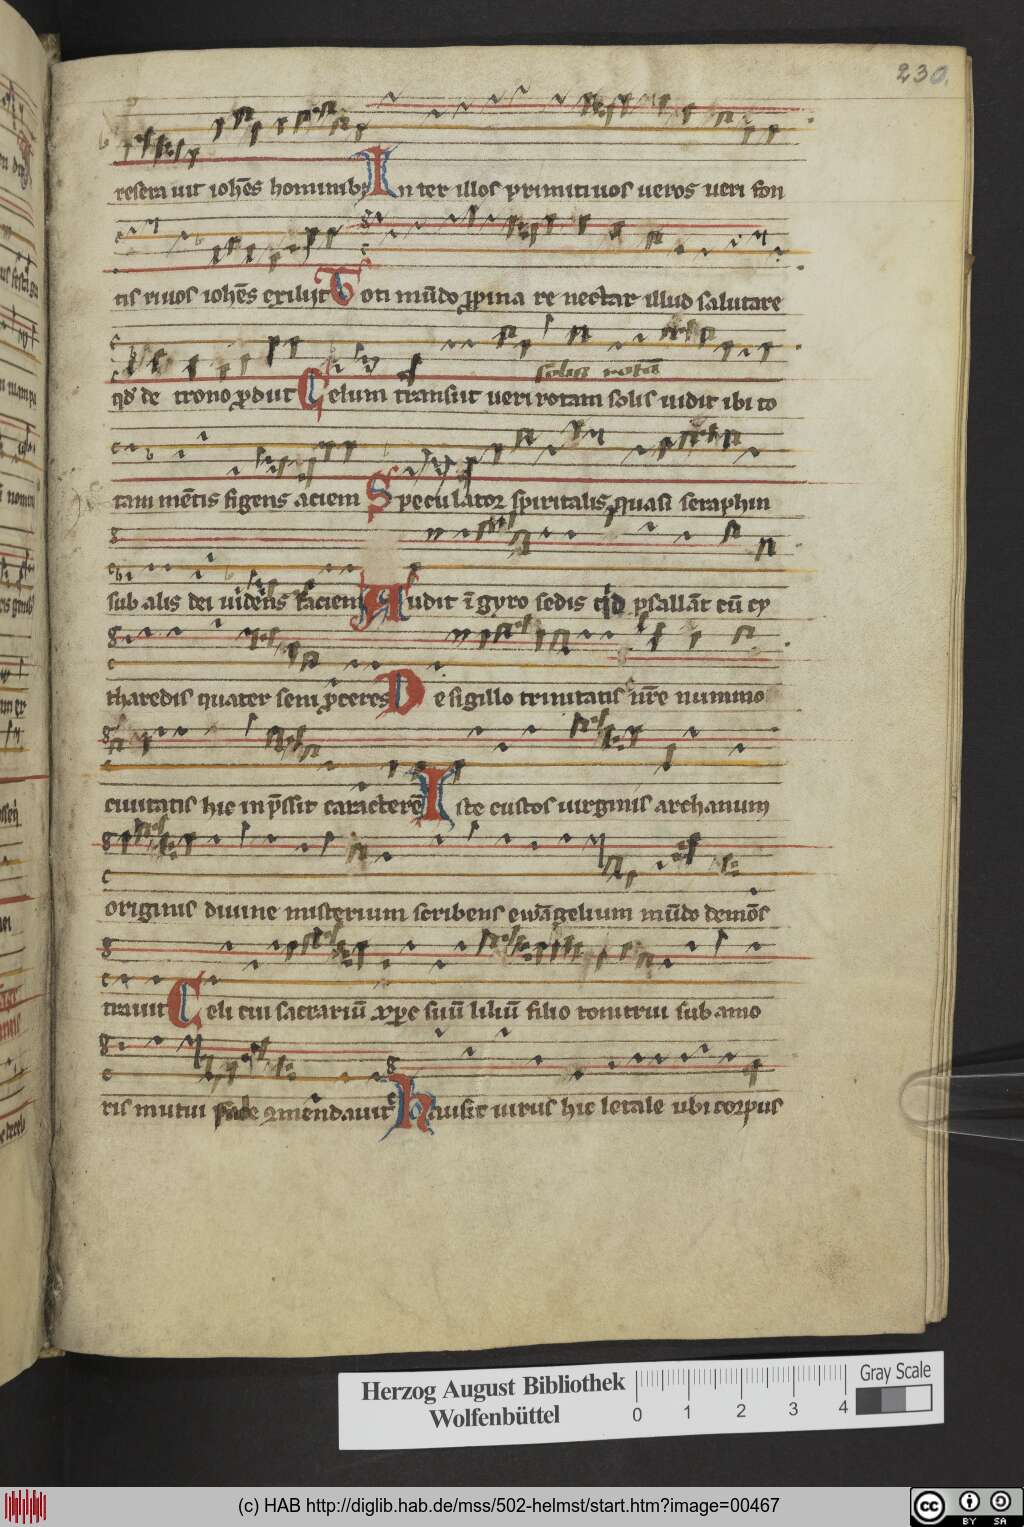 230.
resera uit ioh̄es hominib; In ter illos primitiuos ueros ueri fon
tis riuos ioh̄es exiliit Toti mūdo ꝓpina re nectar illud salutare
solis rotā
qd̛ de trono ꝓdiit Celum transiit ueri rotam solis uidit ibi to
tam mētis figens aciem Speculator spiritalis quasi seraphin
sub alis dei uidens faciem Audit ī gyro sedis qid psallāt cū cy
tharedis quater seni ꝓceres De sigillo trinitatis nr̄e nummo
ciuitatis hic inp̄ssit caracterē Iste custos uirginis archanum
originis diuine misterium scribens ewāgelium mūdo demōs
trauit Celi cui sacrariū xp̄c suū liliū filio tonitrui sub amo
ris mutui pace ꝯmendauit hausit uirus hic letale ubi corpus
Herzog August Bibliothek
Wolfenbüttel
0 1 2 3 4
Gray Scale
(c) HAB http://diglib.hab.de/mss/502-helmst/start.htm?image=00467
cc BY SA